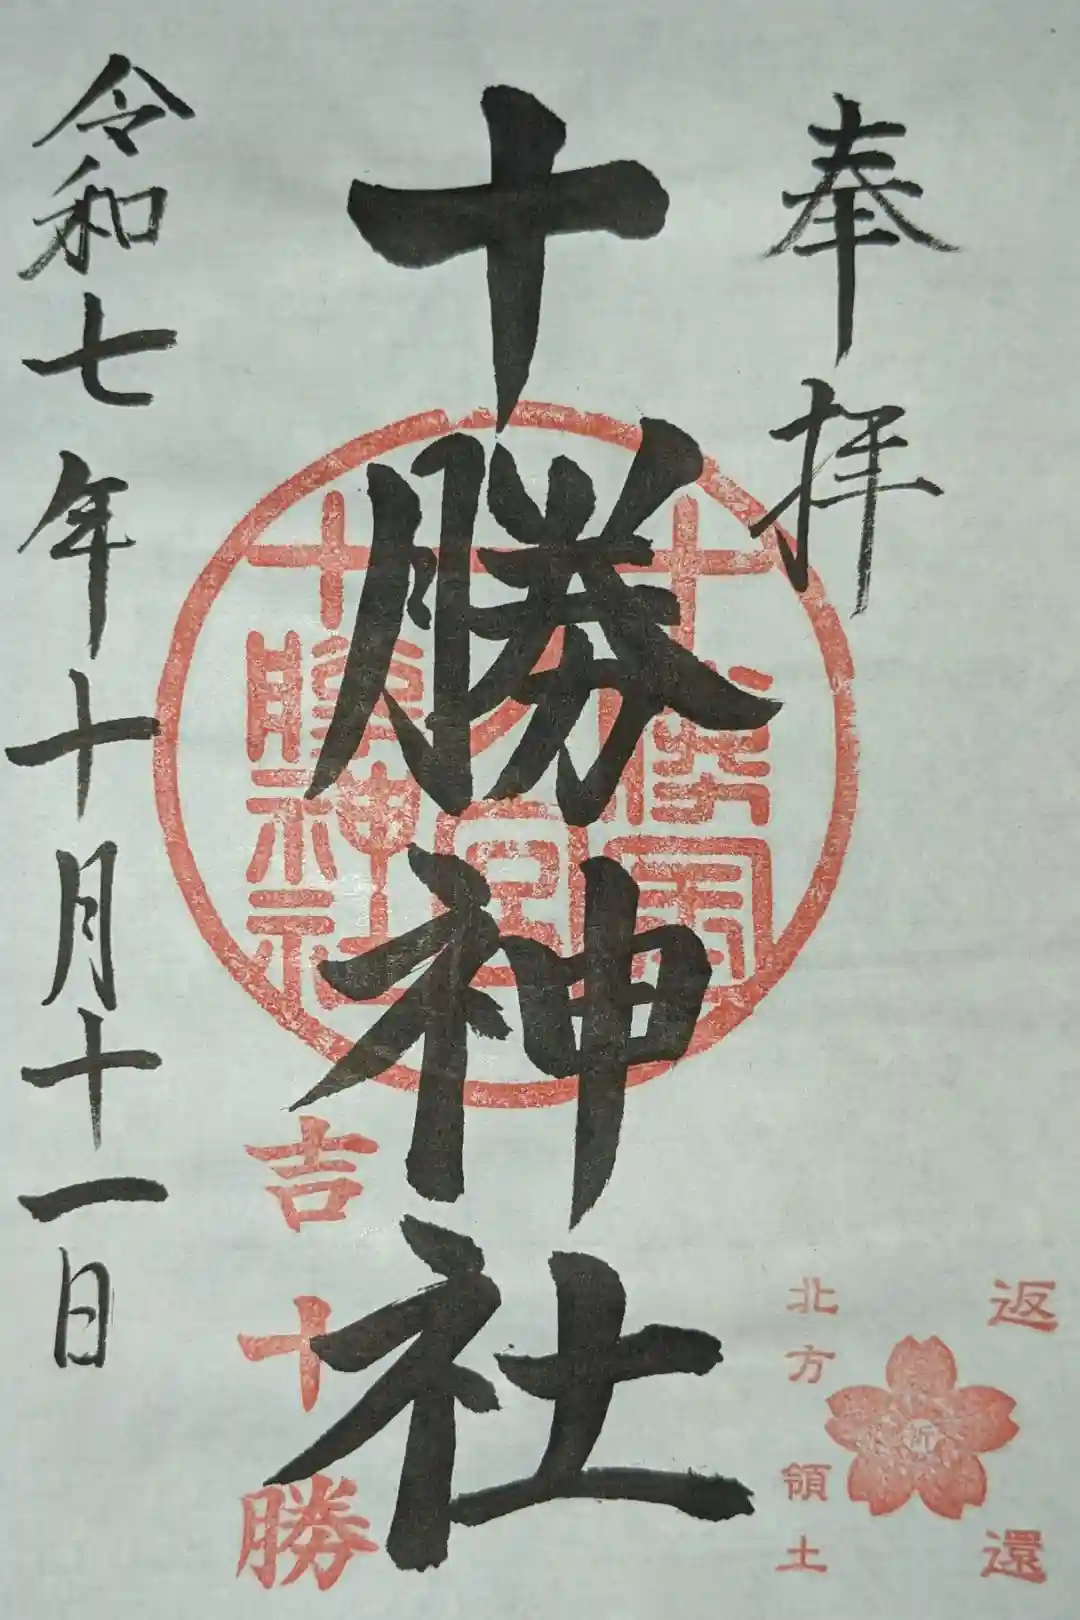 奉拝
十勝神社
令和七年十月十一日
十勝國
十勝神社
吉十勝
返還
北方領土
祈